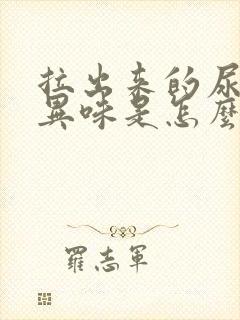 拉出来的尿
異味是怎麼
羅志軍